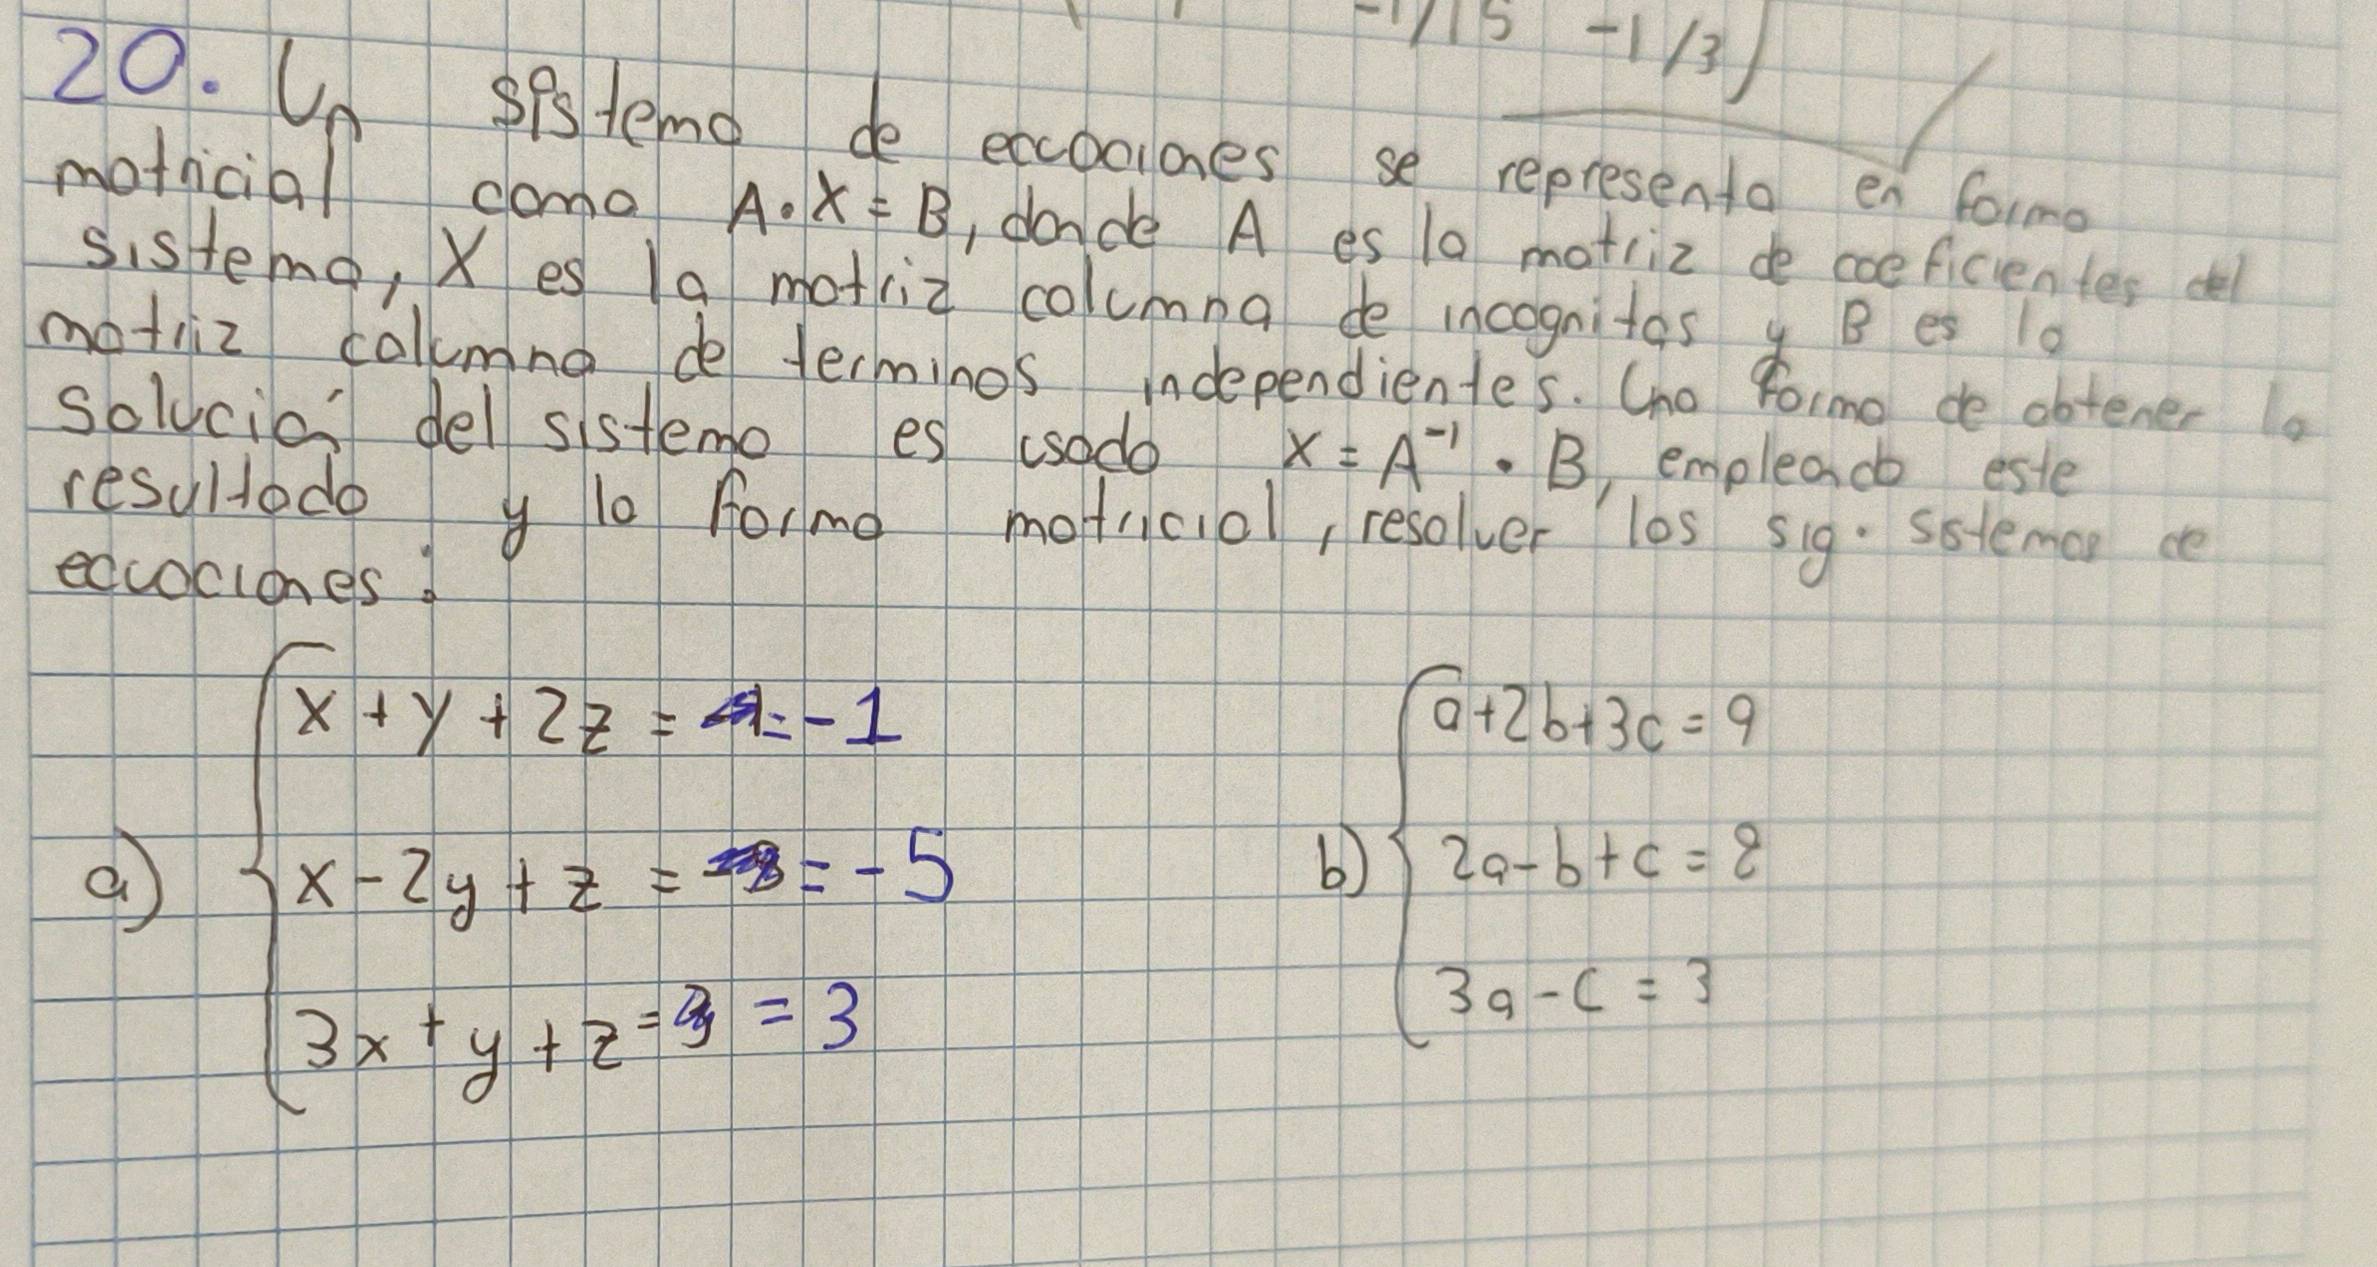 -1/15 -1/3)
20. Un sistema de ecuaciones se representa en forma
matricial como A·X = B, donde A es la matriz de coeficientes del
sistema, X es la matriz columna de incognitas y B es la
matriz columna de terminos independientes. Una forma de obtener la
solución del sistema es usado X = A⁻¹ · B, empleado este
resultado y la forma matricial, resolver los sig. sistemas de
ecuaciones:
x + y + 2z = = -1
a+2b+3c = 9
a) x - 2y + z = = -5
b) 2a-b+c = 8
3x + y + z = = 3
3a-c = 3